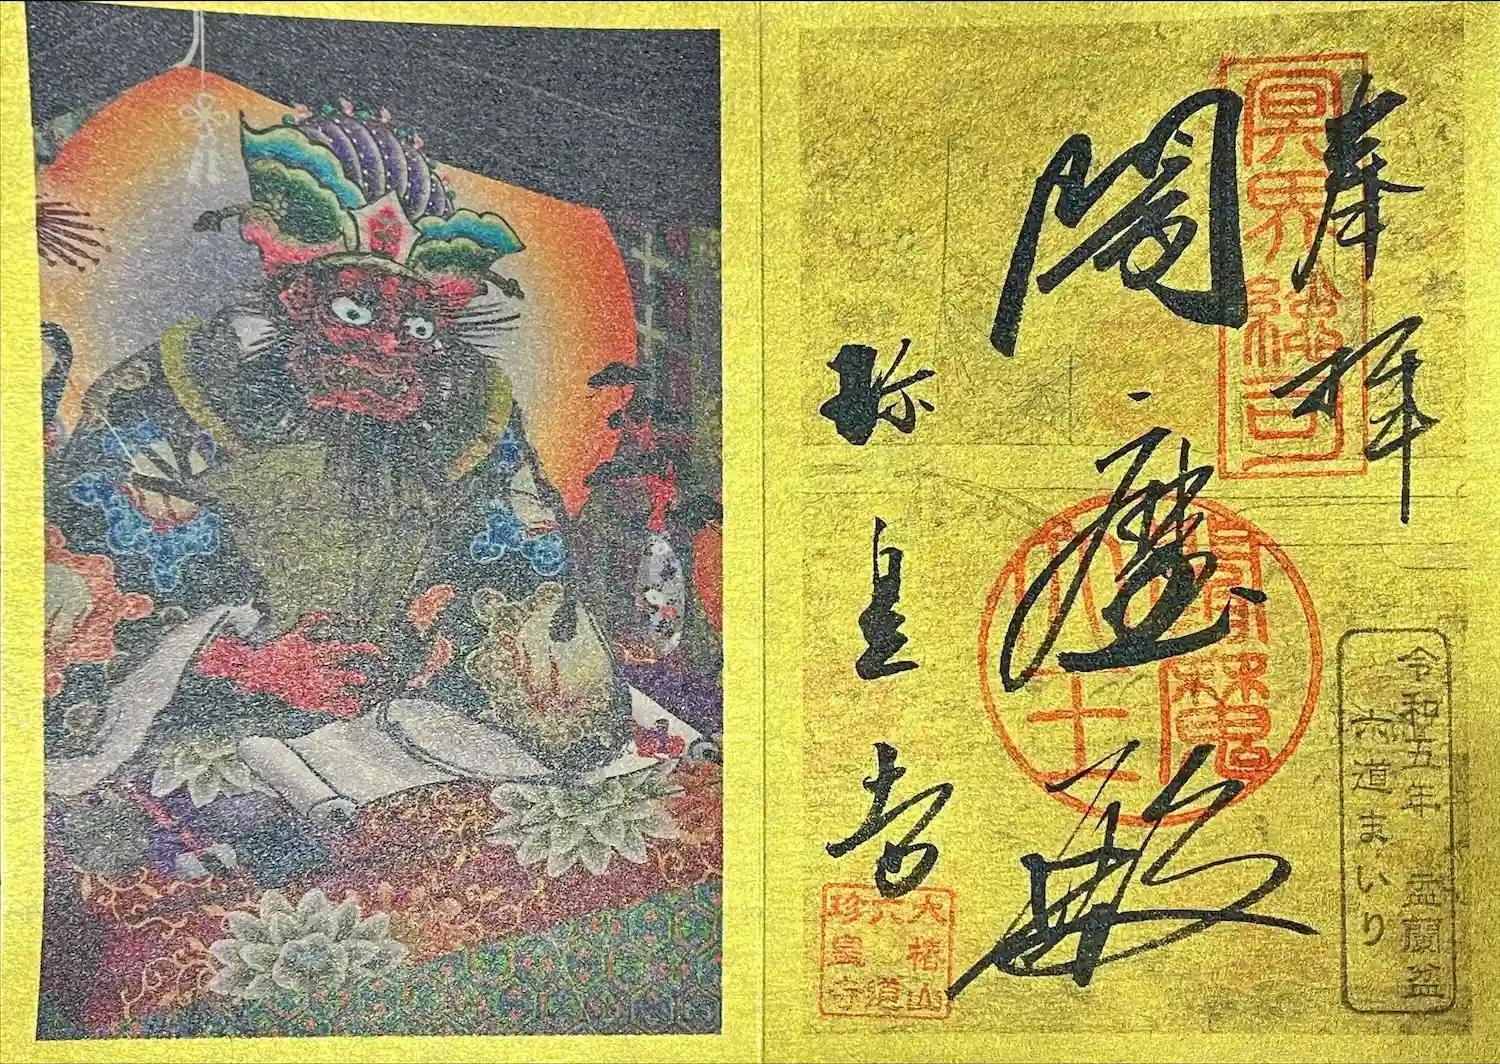 奉拝
冥界總司
閻魔殿
珍皇寺
令和五年 盂蘭盆
六道まいり
大椿山
六道
珍皇寺